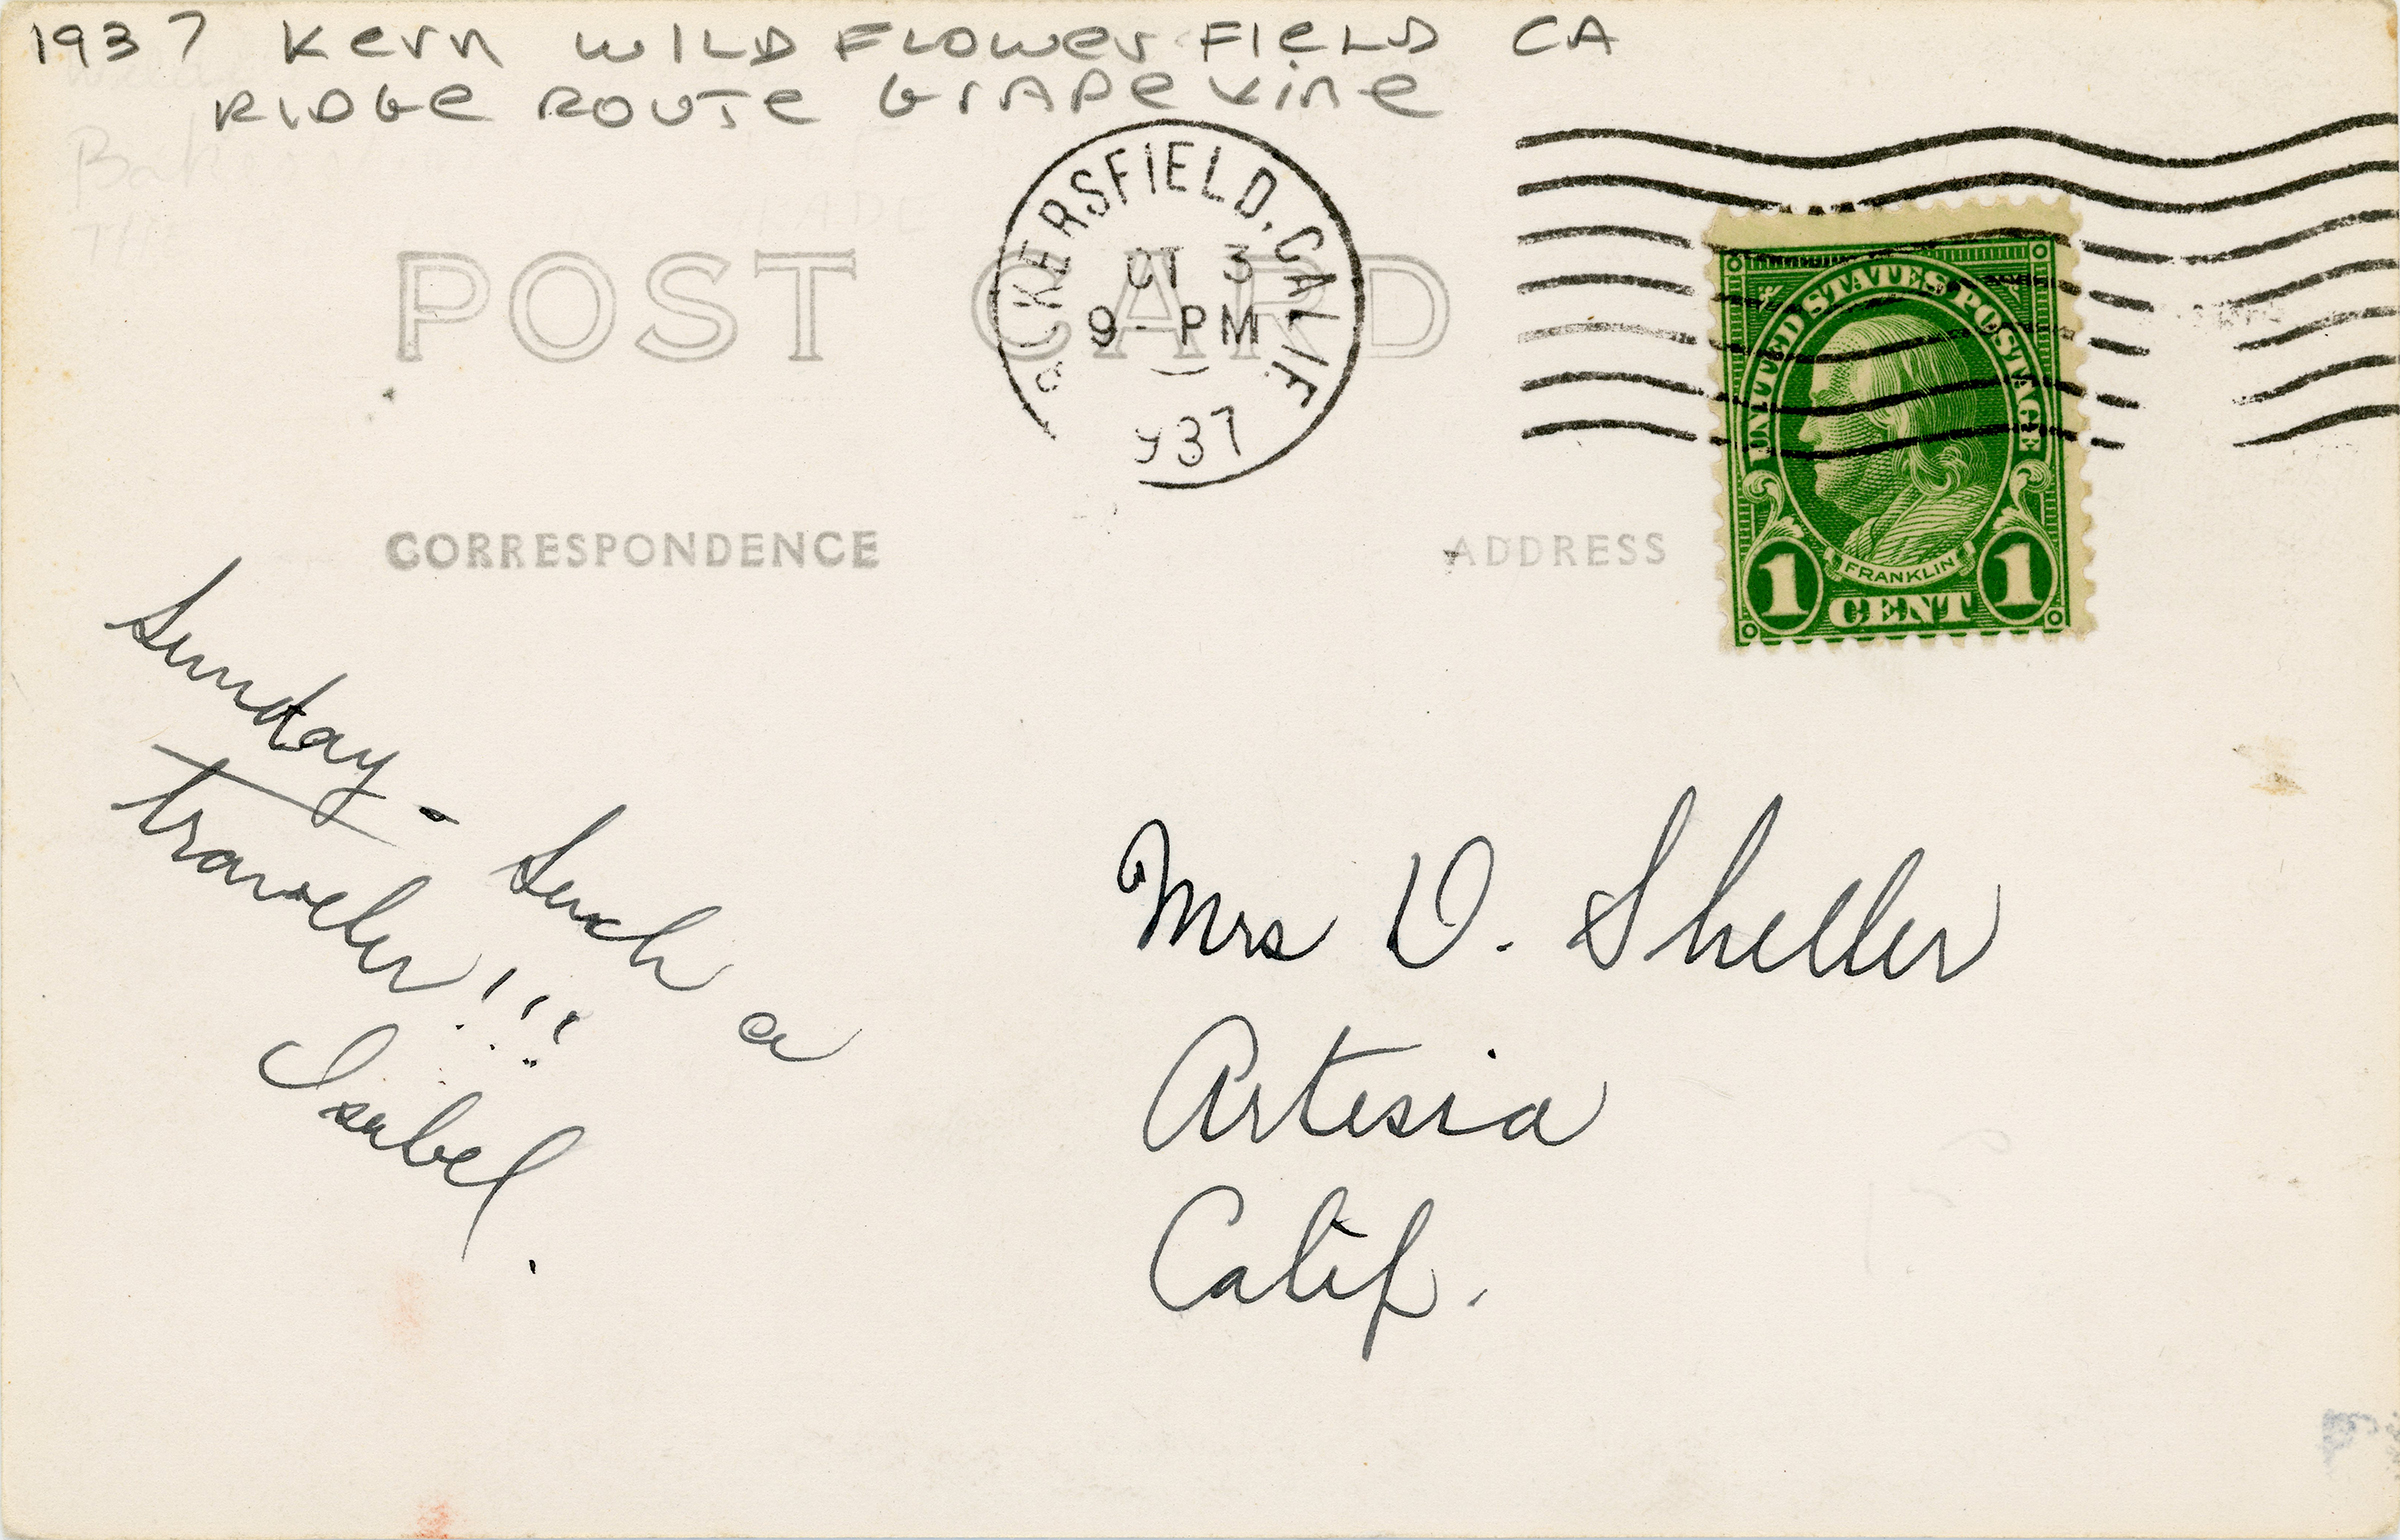 1937 Kern WILD FLOWER FIELD CA
RIDGE ROUTE GRAPEVINE
POST CARD
BAKERSFIELD, CALIF.
OCT 3
9 - PM
1937
UNITED STATES POSTAGE
FRANKLIN
1 CENT 1
CORRESPONDENCE
ADDRESS
Sunday - Such a
traveler!!!
Isabel.
Mrs V. Sheller
Artesia
Calif.